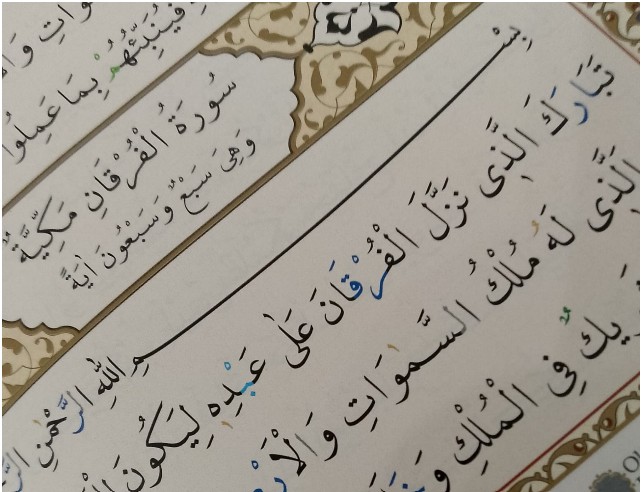 فَيُنَبِّئُهُمْ بِمَا عَمِلُوا
سُورَةُ الْفُرْقَانِ مَكِّيَّةٌ
وَهِىَ سَبْعٌ وَسَبْعُونَ اٰيَةً
بِسْمِ اللّٰهِ الرَّحْمٰنِ
تَبَارَكَ الَّذٖى نَزَّلَ الْفُرْقَانَ عَلٰى عَبْدِهٖ لِيَكُونَ
الَّذٖى لَهُ مُلْكُ السَّمٰوَاتِ وَالْاَرْضِ
يكٌ فِى الْمُلْكِ